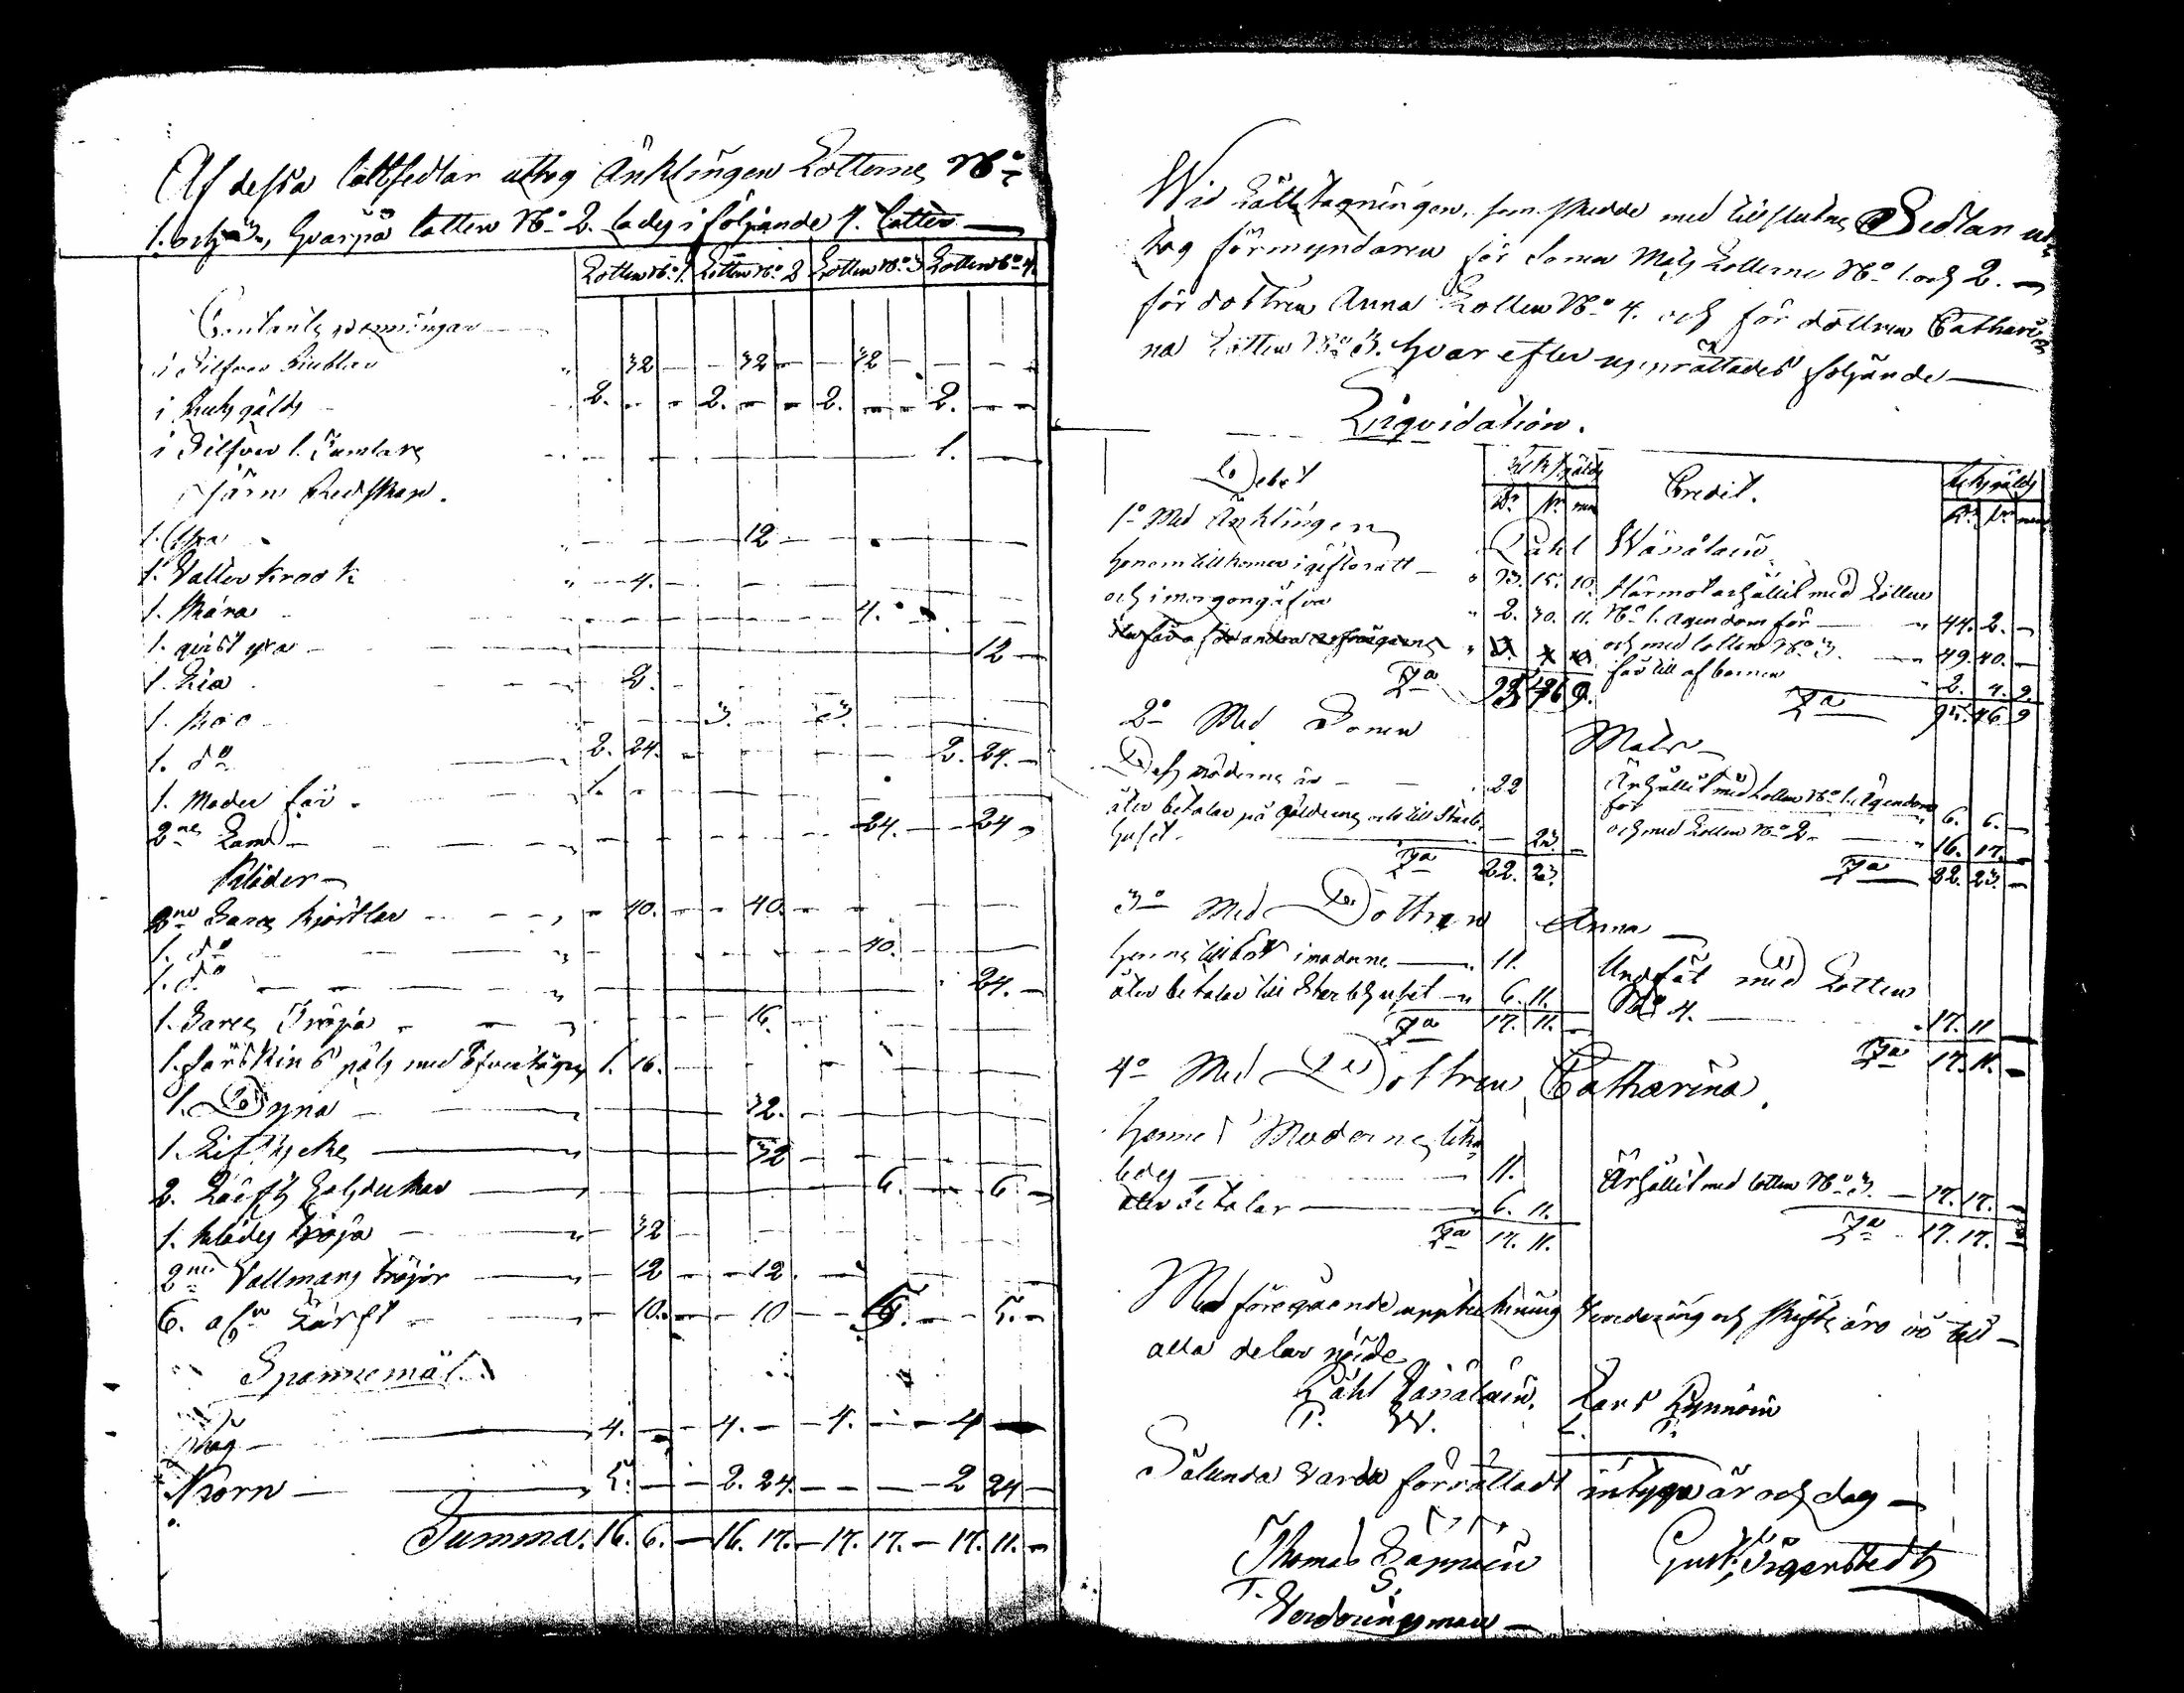 Af dessa lottsedlar uttog Änklingen Lotterne No
1. och 3., hvarpå lotten No 2. lades i följande 4. lotter —
Lotten No 1. Lotten No 2 Lotten No 3 Lotten No 4.
Contante penningar
i Silfver Rubler 32 — — 32 — — 32 — — — —
i Riksgälds 2. — — 2. — — 2. — — 2. — —
i Silfver 1. Tumlare — — — 1.
Järn Redskap.
1. Yxa — 12 —
1. Vatten krok — 4. —
1. Skära — 4.
1. qvist yxa — 12 —
1. Lia — 2.
1. Ko — 3. — 3.
1. do 2. 24. — — 2. 24. —
1. Moder får 1. —
2ne Lamb — 24. — 24 —
Kläder —
2ne Sars kjortlar — 40. — — 40. —
1. do — 40. —
1. do — 24. —
1. Sarts Tröja — 16.
1. fårskins päls med öfvertåg 1. 16. —
1. Dyna — 32. —
1. Lifstycke — 32 —
2. Lärfts Halsdukar — 6. — 6 —
1. klädes tröja — 32 —
2ne Vallmans tröjor — 12 — — 12. —
6. aln Lärft — 10. — — 10 — — 5. — — 5. —
Spannemål.
Råg — 4. — — 4. — — 4. — — 4 —
Korn — 5. — — 2. 24. — — — 2 24 —
Summa. 16. 6. — 16. 17. — 17. 17. — 17. 11. —
Wid Lottstagningen, som skedde med tillslutne Sedlar ut-
tog förmyndaren för Sonen Mats Lotterne No 1. och 2. —
för dottren Anna Lotten No 4. och för dottren Cathari-
na Lotten No 3. hvarefter upprättades följande —
Liquidation.
Debet Riksgälds Credit. Riksgälds
1o Med Änklingen Påhl Wänäläin
honom tillkommer i giftorätt — 93. 15. 10. Härmot erhållit med Lotten
och i morgongåfva 2. 30. 11. No 1. egendom för — 44. 2. —
och med lotten No 3. — 49. 40. —
får till af barnen 2. 4. 9.
Sa 95. 46 9. Sa 95. 46. 9
2o Med Sonen Mats —
Dess möderne är — 22 Erhållit med Lotten No 1. Egendom
för 6. 6. —
åter betalar på gälderne och till Sterb-
huset — 23. — och med Lotten No 2 — 16. 17. —
Sa 22. 23. Sa 22. 23. —
3o Med Dottren Anna —
henne tillkommer i möderne — 11. Undfåt med Lotten
åter betalar till Sterbhuset — 6. 11. No 4. — 17. 11
Sa 17. 11. — Sa 17. 11. —
4o Med Dottren Catharina.
Hennes Möderne lika-
ledes — 11. Erhållit med lotten No 3. — 17. 17. —
åter betalar — 6. 11.
Sa 17. 11. Sa 17. 17. —
Med föregående uppteckning Värdering och skifte äro vi till —
alla delar nöjde
Påhl Wänäläin. Lars Hynnöin
P. W. L. H.
Sålunda vara förrättadt intyga år och dag —
Thomas Säppäin Gust: Sigerstedt
T. S.
Värderingsman —